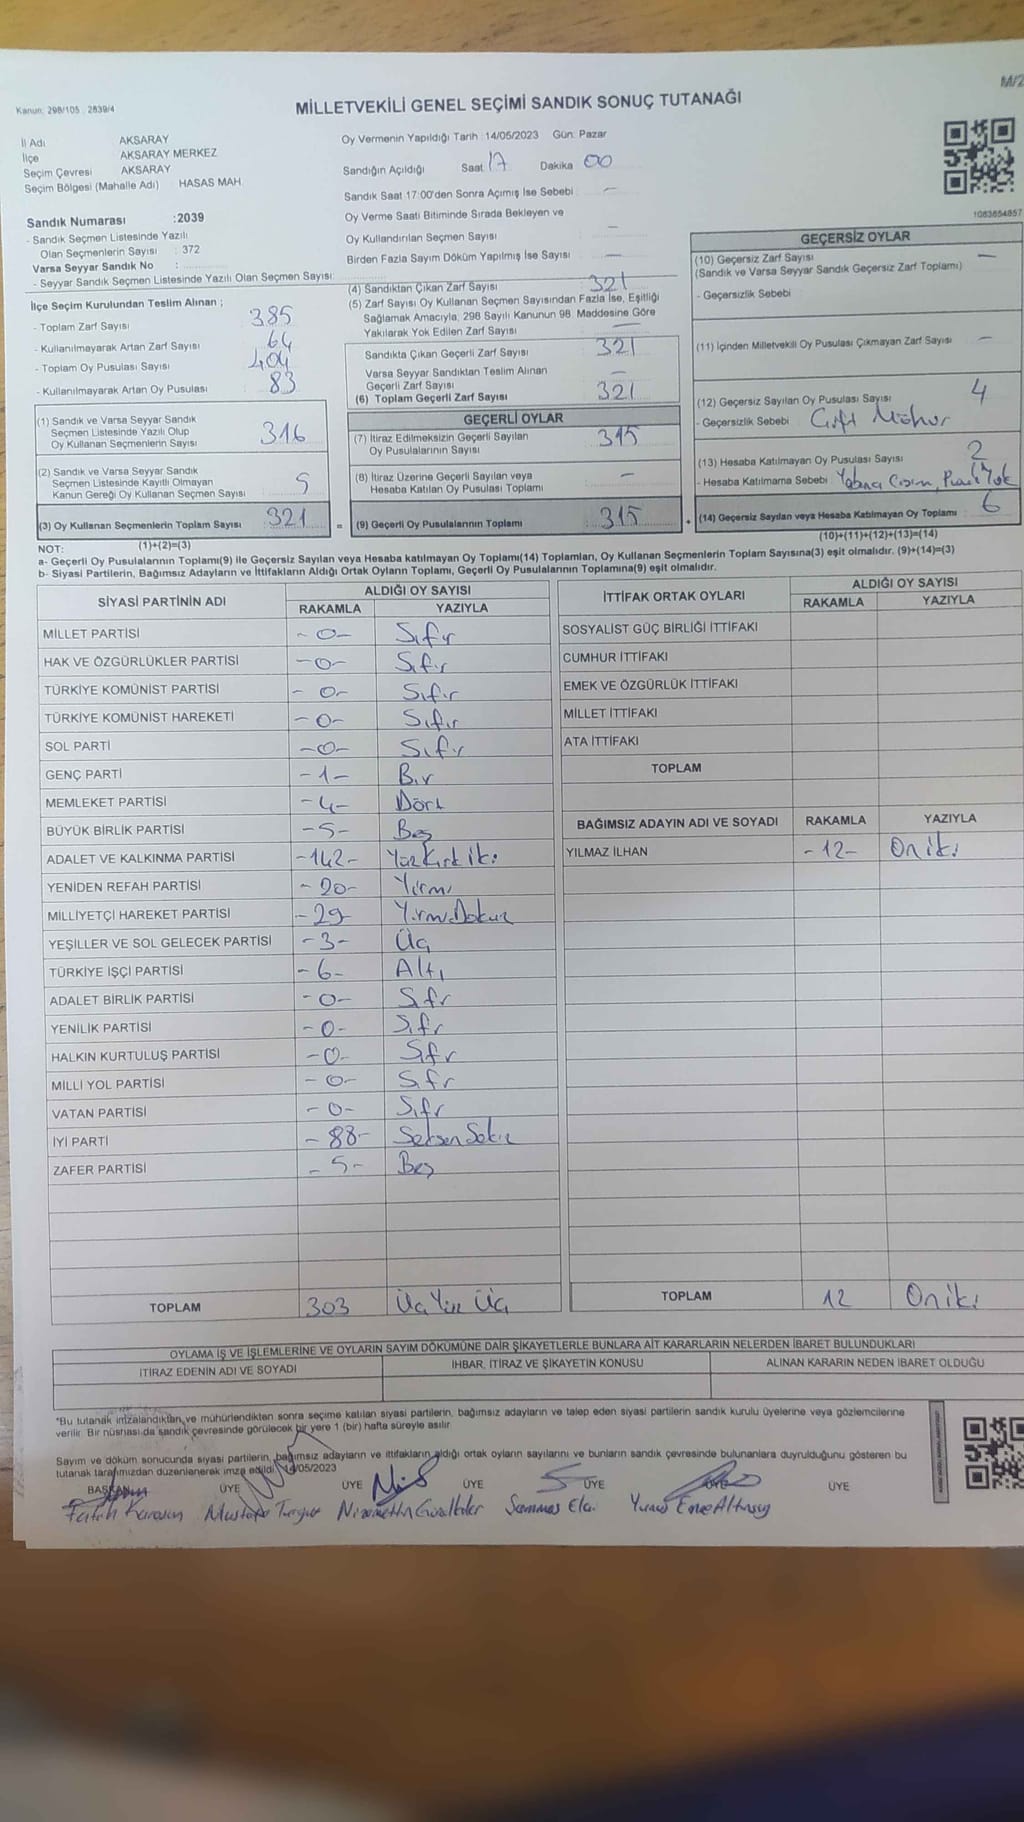 M/2
Kanun: 298/105 : 2839/4
MİLLETVEKİLİ GENEL SEÇİMİ SANDIK SONUÇ TUTANAĞI
İl Adı AKSARAY
İlçe AKSARAY MERKEZ
Seçim Çevresi AKSARAY
Seçim Bölgesi (Mahalle Adı) HASAS MAH.
Sandık Numarası :2039
- Sandık Seçmen Listesinde Yazılı
Olan Seçmenlerin Sayısı : 372
Varsa Seyyar Sandık No :
- Seyyar Sandık Seçmen Listesinde Yazılı Olan Seçmen Sayısı:
İlçe Seçim Kurulundan Teslim Alınan ;
- Toplam Zarf Sayısı 385
- Kullanılmayarak Artan Zarf Sayısı 64
- Toplam Oy Pusulası Sayısı 404
- Kullanılmayarak Artan Oy Pusulası 83
(1) Sandık ve Varsa Seyyar Sandık
Seçmen Listesinde Yazılı Olup
Oy Kullanan Seçmenlerin Sayısı 316
(2) Sandık ve Varsa Seyyar Sandık
Seçmen Listesinde Kayıtlı Olmayan
Kanun Gereği Oy Kullanan Seçmen Sayısı 5
(3) Oy Kullanan Seçmenlerin Toplam Sayısı 321
(1)+(2)=(3)
Oy Vermenin Yapıldığı Tarih : 14/05/2023 Gün: Pazar
Sandığın Açıldığı Saat 17 Dakika 00
Sandık Saat 17:00'den Sonra Açımış İse Sebebi : —
Oy Verme Saati Bitiminde Sırada Bekleyen ve
Oy Kullandırılan Seçmen Sayısı —
Birden Fazla Sayım Döküm Yapılmış İse Sayısı : —
(4) Sandıktan Çıkan Zarf Sayısı 321
(5) Zarf Sayısı Oy Kullanan Seçmen Sayısından Fazla İse, Eşitliği
Sağlamak Amacıyla, 298 Sayılı Kanunun 98. Maddesine Göre
Yakılarak Yok Edilen Zarf Sayısı —
Sandıkta Çıkan Geçerli Zarf Sayısı 321
Varsa Seyyar Sandıktan Teslim Alınan
Geçerli Zarf Sayısı —
(6) Toplam Geçerli Zarf Sayısı 321
GEÇERLİ OYLAR
(7) İtiraz Edilmeksizin Geçerli Sayılan
Oy Pusulalarının Sayısı 315
(8) İtiraz Üzerine Geçerli Sayılan veya
Hesaba Katılan Oy Pusulası Toplamı —
= (9) Geçerli Oy Pusulalarının Toplamı 315
1083654857
GEÇERSİZ OYLAR
(10) Geçersiz Zarf Sayısı —
(Sandık ve Varsa Seyyar Sandık Geçersiz Zarf Toplamı)
- Geçersizlik Sebebi
(11) İçinden Milletvekili Oy Pusulası Çıkmayan Zarf Sayısı —
(12) Geçersiz Sayılan Oy Pusulası Sayısı 4
- Geçersizlik Sebebi Çift Mühür
(13) Hesaba Katılmayan Oy Pusulası Sayısı 2
- Hesaba Katılmama Sebebi Yabancı Cisim, Yok
+ (14) Geçersiz Sayılan veya Hesaba Katılmayan Oy Toplamı 6
(10)+(11)+(12)+(13)=(14)
NOT:
a- Geçerli Oy Pusulalarının Toplamı(9) ile Geçersiz Sayılan veya Hesaba katılmayan Oy Toplamı(14) Toplamları, Oy Kullanan Seçmenlerin Toplam Sayısına(3) eşit olmalıdır. (9)+(14)=(3)
b- Siyasi Partilerin, Bağımsız Adayların ve İttifakların Aldığı Ortak Oyların Toplamı, Geçerli Oy Pusulalarının Toplamına(9) eşit olmalıdır.
SİYASİ PARTİNİN ADI ALDIĞI OY SAYISI
RAKAMLA YAZIYLA
MİLLET PARTİSİ -0- Sıfır
HAK VE ÖZGÜRLÜKLER PARTİSİ -0- Sıfır
TÜRKİYE KOMÜNİST PARTİSİ -0- Sıfır
TÜRKİYE KOMÜNİST HAREKETİ -0- Sıfır
SOL PARTİ -0- Sıfır
GENÇ PARTİ -1- Bir
MEMLEKET PARTİSİ -4- Dört
BÜYÜK BİRLİK PARTİSİ -5- Beş
ADALET VE KALKINMA PARTİSİ -142- Yüz Kırk iki
YENİDEN REFAH PARTİSİ -20- Yirmi
MİLLİYETÇİ HAREKET PARTİSİ -29- Yirmi Dokuz
YEŞİLLER VE SOL GELECEK PARTİSİ -3- Üç
TÜRKİYE İŞÇİ PARTİSİ -6- Altı
ADALET BİRLİK PARTİSİ -0- Sıfr
YENİLİK PARTİSİ -0- Sıfr
HALKIN KURTULUŞ PARTİSİ -0- Sıfr
MİLLİ YOL PARTİSİ -0- Sıfr
VATAN PARTİSİ -0- Sıfr
İYİ PARTİ -88- Seksen Sekiz
ZAFER PARTİSİ -5- Beş
TOPLAM 303 Üç Yüz Üç
İTTİFAK ORTAK OYLARI ALDIĞI OY SAYISI
RAKAMLA YAZIYLA
SOSYALİST GÜÇ BİRLİĞİ İTTİFAKI
CUMHUR İTTİFAKI
EMEK VE ÖZGÜRLÜK İTTİFAKI
MİLLET İTTİFAKI
ATA İTTİFAKI
TOPLAM
BAĞIMSIZ ADAYIN ADI VE SOYADI RAKAMLA YAZIYLA
YILMAZ İLHAN -12- Oniki
TOPLAM 12 Oniki
OYLAMA İŞ VE İŞLEMLERİNE VE OYLARIN SAYIM DÖKÜMÜNE DAİR ŞİKAYETLERLE BUNLARA AİT KARARLARIN NELERDEN İBARET BULUNDUKLARI
İTİRAZ EDENİN ADI VE SOYADI İHBAR, İTİRAZ VE ŞİKAYETİN KONUSU ALINAN KARARIN NEDEN İBARET OLDUĞU
*Bu tutanak imzalandıktan ve mühürlendikten sonra seçime katılan siyasi partilerin, bağımsız adayların ve talep eden siyasi partilerin sandık kurulu üyelerine veya gözlemcilerine
verilir. Bir nüshası da sandık çevresinde görülecek bir yere 1 (bir) hafta süreyle asılır.
Sayım ve döküm sonucunda siyasi partilerin, bağımsız adayların ve ittifakların aldığı ortak oyların sayılarını ve bunların sandık çevresinde bulunanlara duyrulduğunu gösteren bu
tutanak tarafımızdan düzenlenerek imza edildi. 14/05/2023
BAŞKAN ÜYE ÜYE ÜYE ÜYE ÜYE ÜYE
Fatih Mustafa Turgut Nizamettin Yunus Emre